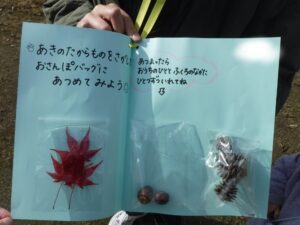 あきのたからものをさがし
おさんぽバッグに
あつめてみよう
あつまったら
おうちのひとと ふくろのなかに
ひとつずついれてね